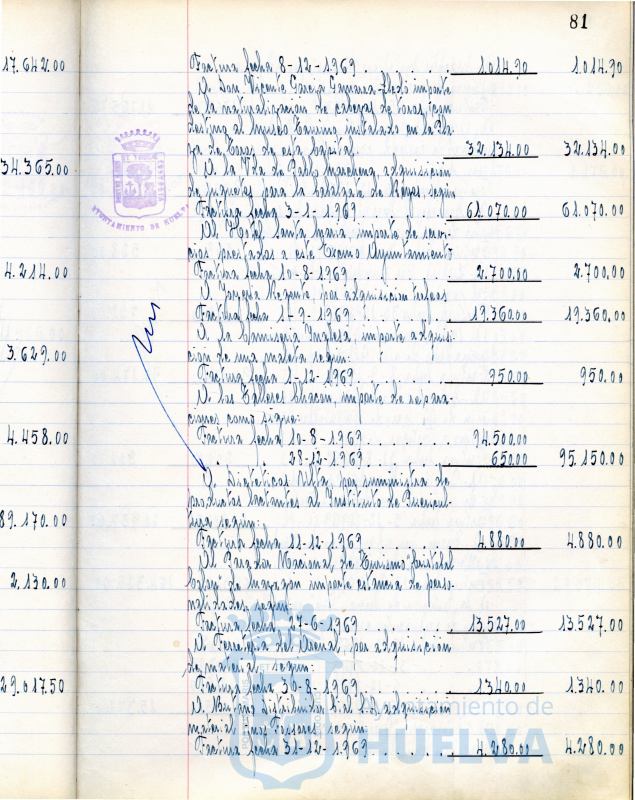 81
17.642.00
Factura fecha 8-12-1969 . . . . . . 1.014.90 1.014.90
D. Don Vicente García importe
de la naturalización de cabezas de toros, con
destino al Museo Taurino, instalado en la Pla-
za de Toros de esta Capital. 32.134.00 32.134.00
34.365.00
A la Vda de Pablo adquisición
de juguetes para la Cabalgata de Reyes, según
Factura fecha 3-1-1969 . . . . . 61.070.00 61.070.00
Al Hotel Santa María, importe de servi-
cios prestados a este Excmo Ayuntamiento
4.214.00
Factura fecha 10-8-1969 . . . . 2.700.00 2.700,00
por adquisición
Factura fecha 1-9-1969 . . . . 19.360.00 19.360.00
A la Camisería Inglesa, importe adquisi-
ción de una maleta según:
3.629.00
Factura fecha 1-12-1969 . . . . . 950.00 950.00
A los Talleres Chacón, importe de repara-
ciones como sigue:
4.458.00
Factura fecha 10-8-1969 . . . . . . 94.500.00
28-12-1969 . . . . . 650.00 95.150.00
A Dietéticos por suministro de
productos lactantes al Instituto de Puericul-
tura según:
89.170.00
Factura fecha 11-12-1969 . . . . 4.880.00 4.880.00
Al Parador Nacional de Turismo "Cristobal
Colon" de Mazagon importe estancia de perso-
nalidades, según:
2.130.00
Factura fecha 27-6-1969 . . . . . 13.527.00 13.527.00
A Ferretería del Arenal, por adquisición
de material, según:
29.017.50
Factura fecha 30-8-1969 . . . . . 1.340.00 1.340.00
adquisición
material según:
Factura fecha 31-12-1969 . . . . . 4.280.00 4.280.00
AYUNTAMIENTO DE HUELVA
Ayuntamiento de
HUELVA